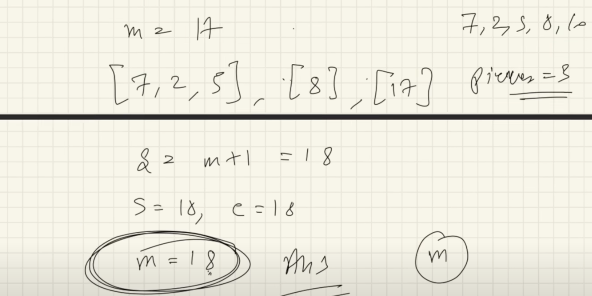 m = 17
7, 2, 5, 8, 10
[7, 2, 5], [8], [17]
pieces = 3
S = m+1 = 18
S = 18, e = 18
m = 18
Ans
m